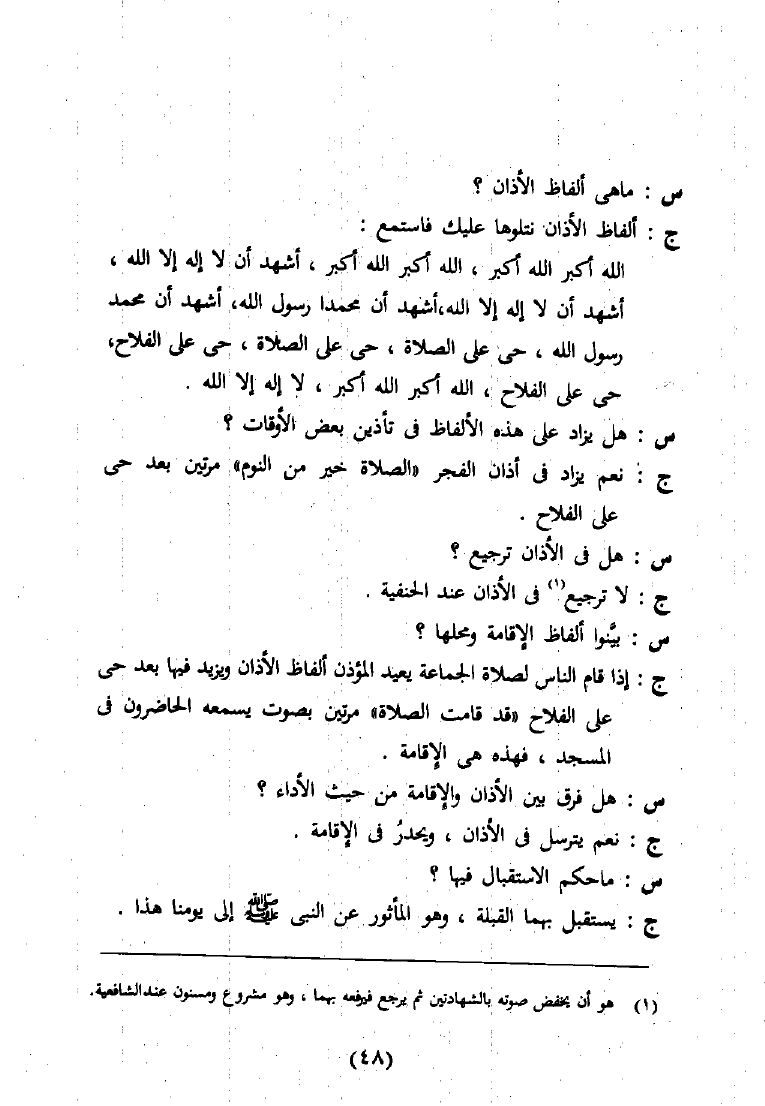 س : ماهى ألفاظ الأذان ؟
ج : ألفاظ الأذان نتلوها عليك فاستمع :
الله أكبر الله أكبر ، الله أكبر الله أكبر ، أشهد أن لا إله إلا الله ،
أشهد أن لا إله إلا الله،أشهد أن محمدا رسول الله، أشهد أن محمد
رسول الله ، حى على الصلاة ، حى على الصلاة ، حى على الفلاح،
حى على الفلاح ، الله أكبر الله أكبر ، لا إله إلا الله .
س : هل يزاد على هذه الألفاظ فى تأذين بعض الأوقات ؟
ج : نعم يزاد فى أذان الفجر «الصلاة خير من النوم» مرتين بعد حى
على الفلاح .
س : هل فى الأذان ترجيع ؟
ج : لا ترجيع(١) فى الأذان عند الحنفية .
س : بيَّنوا ألفاظ الإقامة ومحلها ؟
ج : إذا قام الناس لصلاة الجماعة يعيد المؤذن ألفاظ الأذان ويزيد فيها بعد حى
على الفلاح «قد قامت الصلاة» مرتين بصوت يسمعه الحاضرون فى
المسجد ، فهذه هى الإقامة .
س : هل فرق بين الأذان والإقامة من حيث الأداء ؟
ج : نعم يترسل فى الأذان ، ويحدرُ فى الإقامة .
س : ماحكم الاستقبال فيها ؟
ج : يستقبل بهما القبلة ، وهو المأثور عن النبى ﷺ إلى يومنا هذا .
(١) هو أن يخفض صوته بالشهادتين ثم يرجع فيرفعه بهما ، وهو مشروع ومسنون عندالشافعية.
(٤٨)